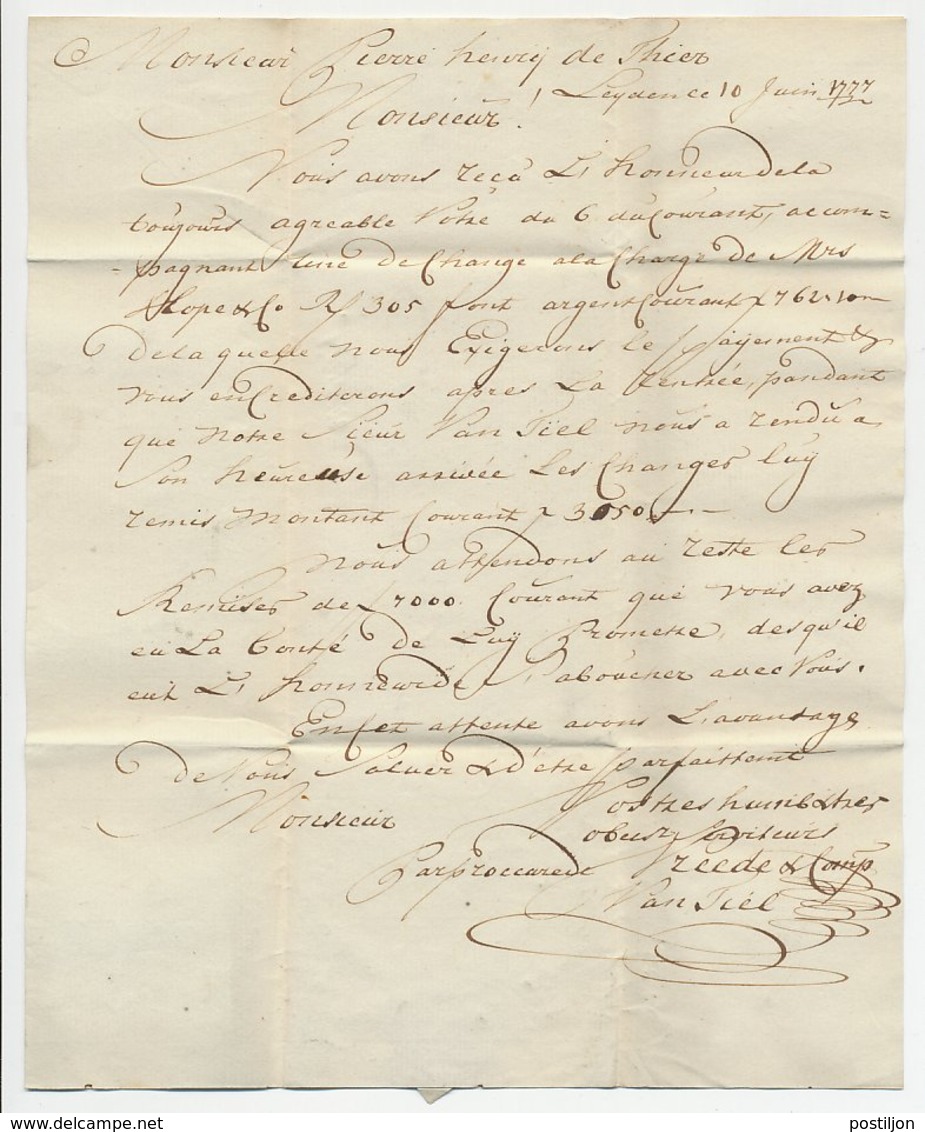 Monsieur Pierre henrij de Thier
Leyden ce 10 Juin 1777
Monsieur!
Nous avons reçu L'honneur de la
toujours agreable Votre du 6 du Courant, accom=
=pagnant une de Change a la Charge de Mrs
Hope & Co R/ 305 font argent Courant f 762.10
de la quelle nous Exigerons le payement &
vous en Crediterons apres La Rentrée, pandant
que notre Sieur Van Tiel nous a rendu a
Son heureuse arrivée Les Changes luy
remis montant Courant f 3050.–
Nous attendons au reste les
Remises de f 7000 Courant que vous avez
eu La bonté de Luy Promettre, desqu'il
eut L'honneur de S'aboucher avec Vous.
En cet attente avons L'avantage
de Vous Saluer & d'être parfaittemt
Monsieur Vostres humb & tres
obeist Serviteurs
Par proccuredt Vreede & Comp
Van Tiel
postiljon